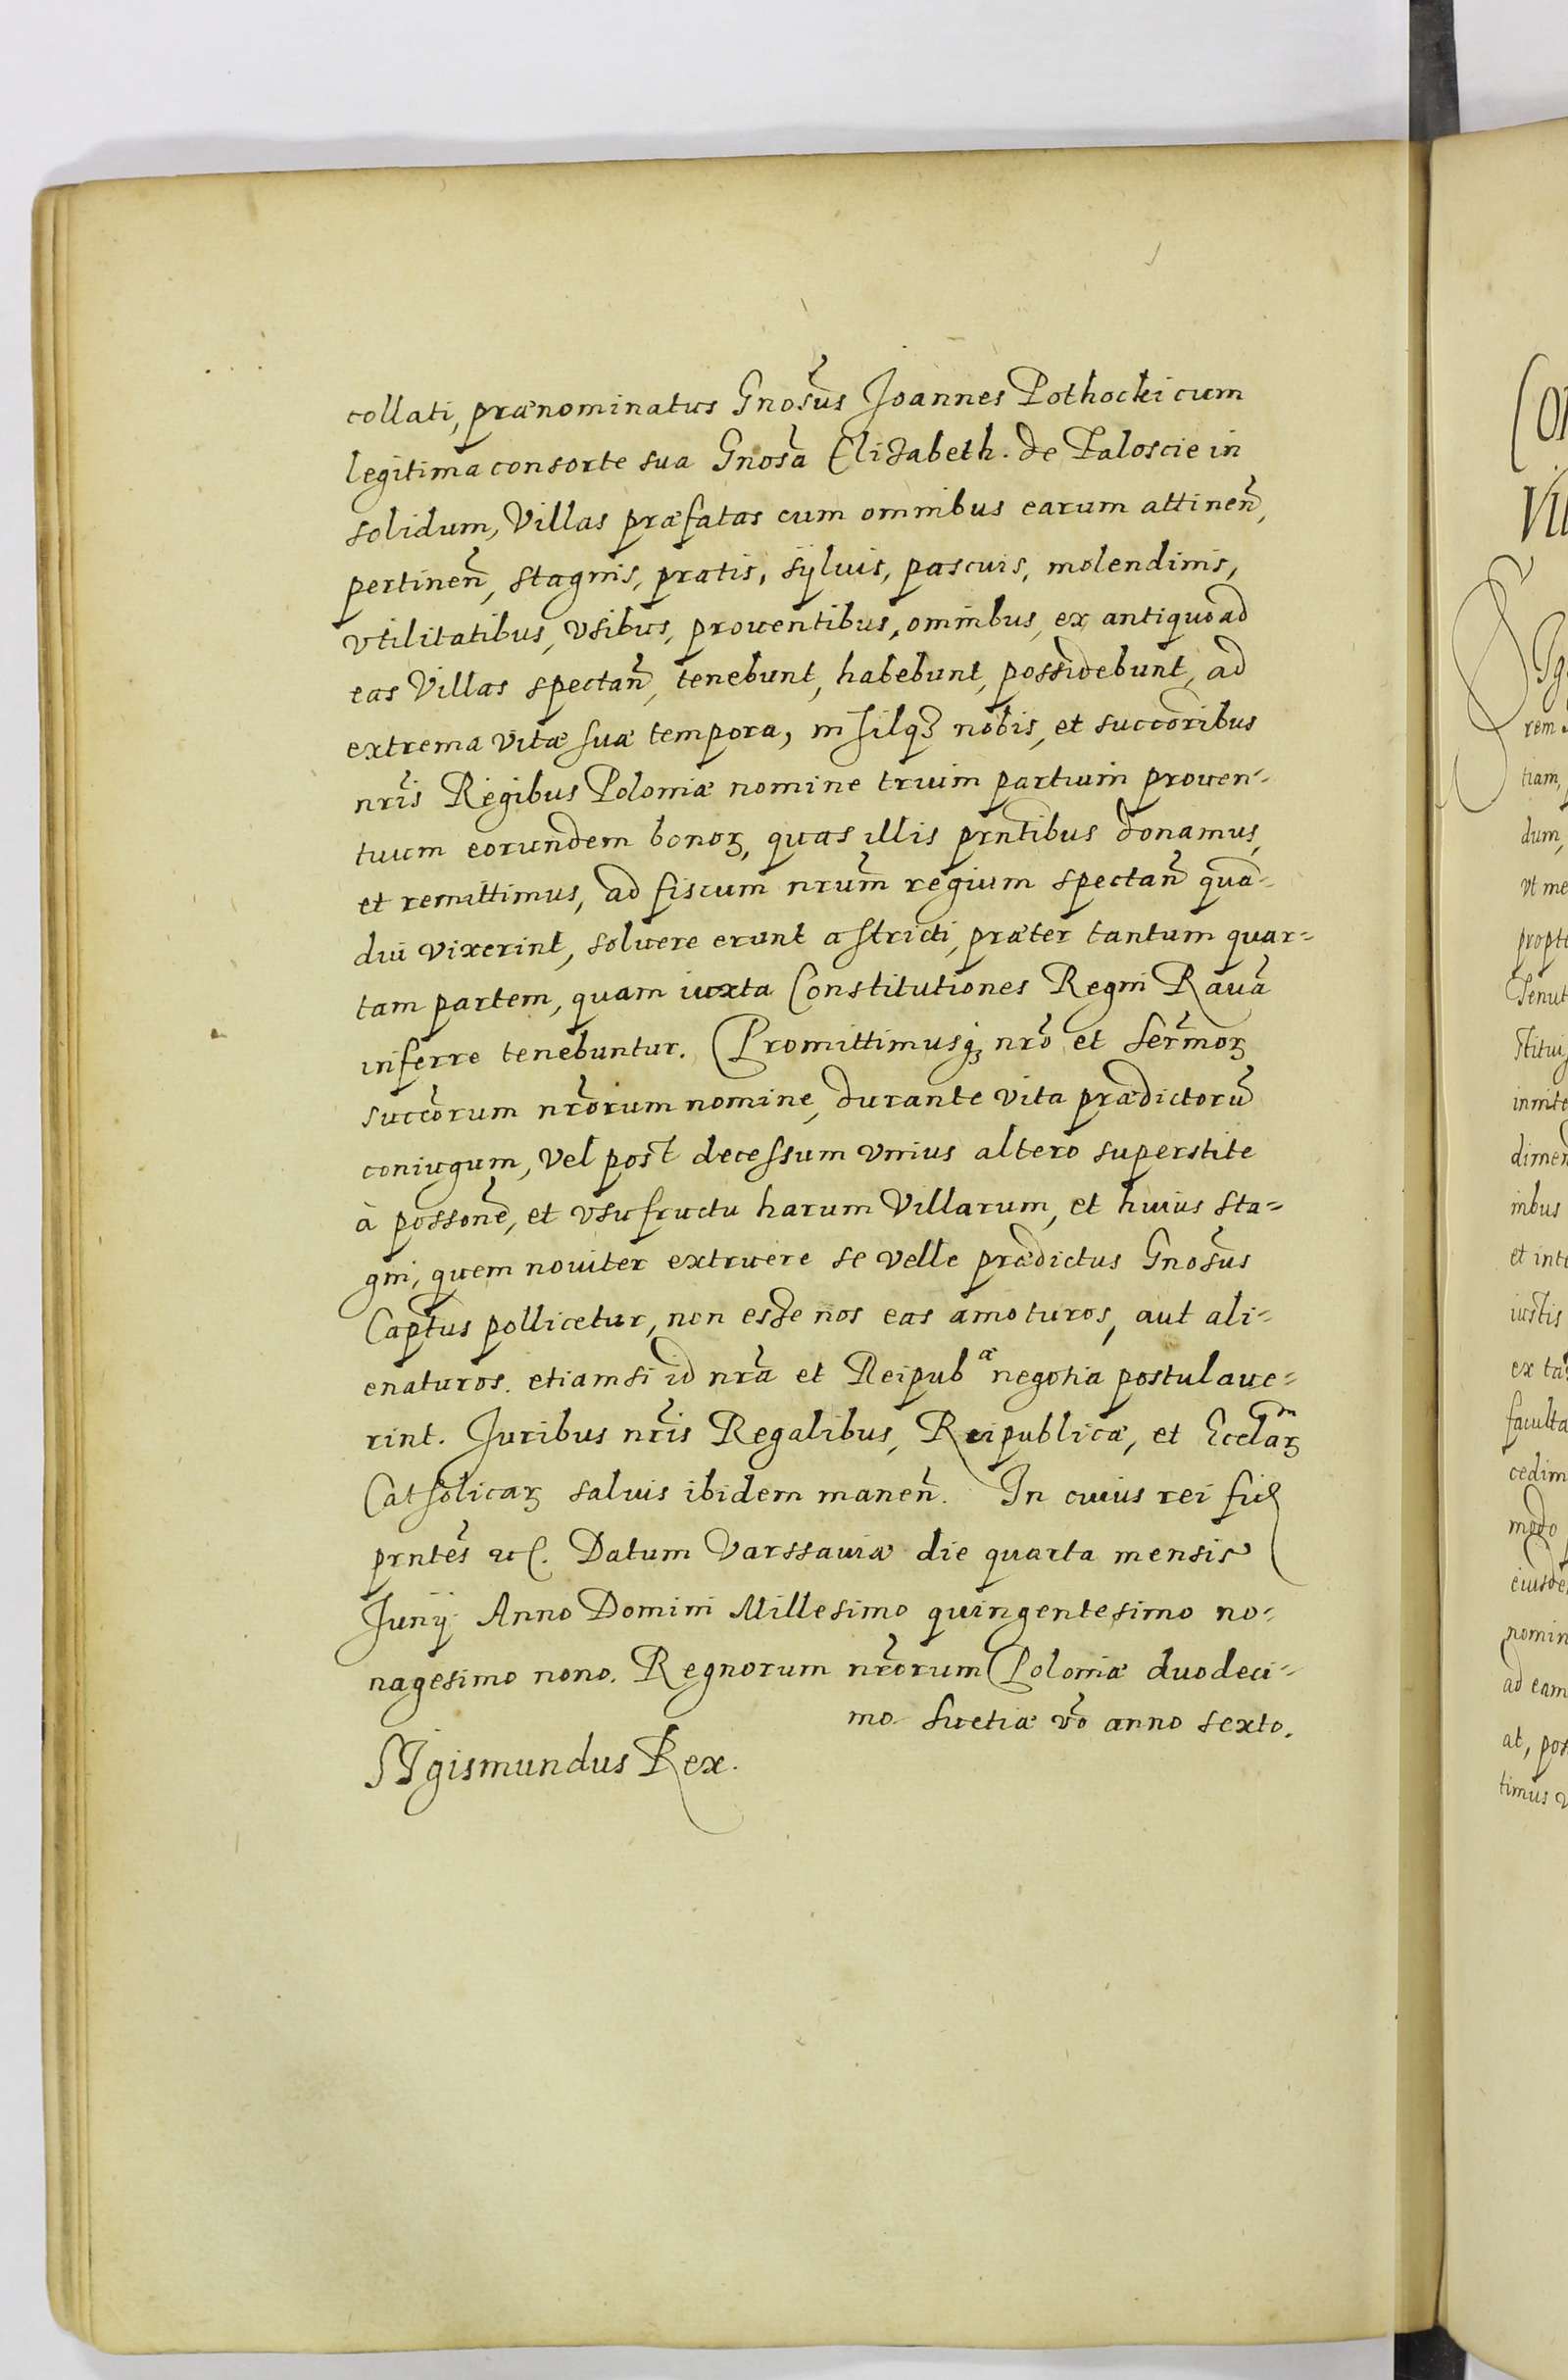 collati, prænominatus Gnosus Joannes Pothocki cum
legitima consorte sua Gnosa Elizabeth. de Paloscie in
solidum, Villas præfatas cum omnibus earum attinen,
pertinen, stagnis, pratis, sÿluis, pascuis, molendinis,
vtilitatibus, vsibus, prouentibus, omnibus, ex antiquo ad
eas Villas spectan, tenebunt, habebunt, possidebunt, ad
extrema vitæ suæ tempora, nihilq3 nobis, et succoribus
nris Regibus Poloniæ nomine trium partium prouen=
tuum eorundem bonoꝝ, quas illis prntibus donamus,
et remittimus, ad fiscum nrum regium spectan qua=
diu vixerint, soluere erunt astricti, præter tantum quar=
tam partem, quam iuxta Constitutiones Regni Raua
inferre tenebuntur. Promittimusq3 nro et Sermoꝝ
succorum nrorum nomine, durante vita prædictorũ
coniugum, vel post decessum vnius altero superstite
à possone, et vsufructu harum Villarum, et huius sta=
gni, quem nouiter extruere se velle prædictus Gnosus
Captus pollicetur, non esse nos eas amoturos, aut ali=
enaturos. etiamsi id nra et Reipubᵃᵉ negotia postulaue=
rint. Juribus nris Regalibus, Reipublicæ, et Ecclaꝝ
Catholicaꝝ saluis ibidem manen. In cuius rei fid
prntes etc. Datum Varssauiæ die quarta mensis
Junÿ Anno Domini Millesimo quingentesimo no=
nagesimo nono. Regnorum nrorum Poloniæ duodeci=
mo. Suetiæ vo anno sexto.
SIgismundus Rex.
Vil
SIg
rem
tiam,
dum,
vt me
Tenut
stitui
dimen
nibus
et int
iustis
faculta
cedim
modo
eiusde
nomin
ad eam
at, pos
timus v